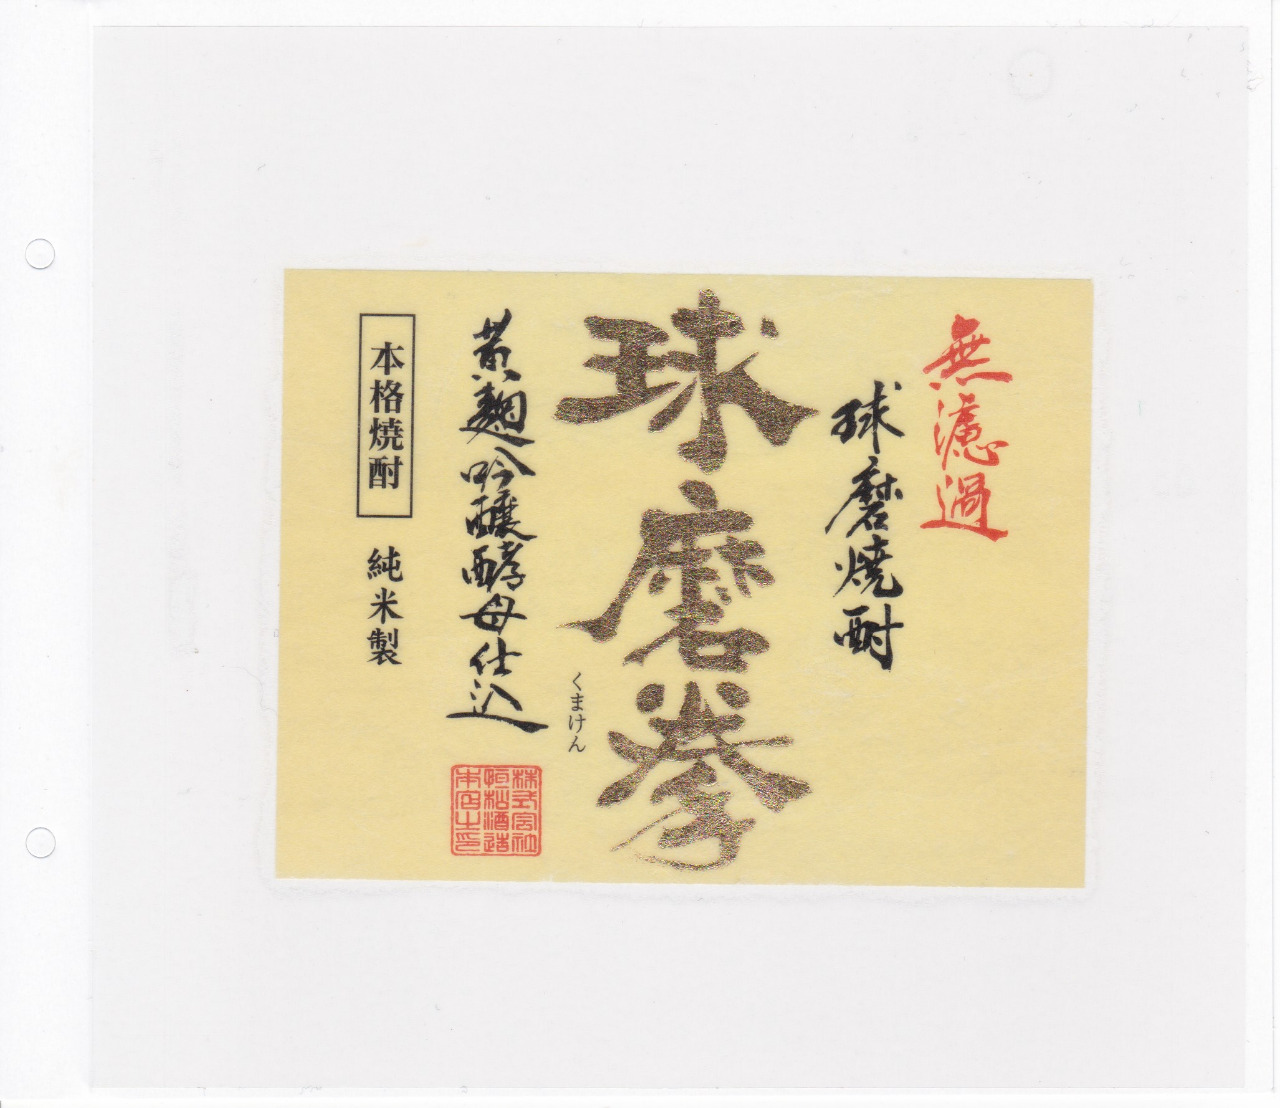 無濾過
球磨焼酎
球磨拳
くまけん
黄麹吟醸酵母仕込
株式会社
恒松酒造
本店之印
本格焼酎
純米製